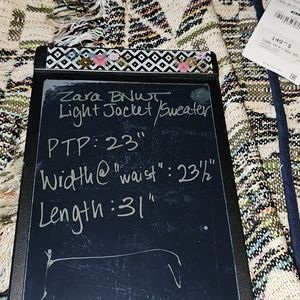 Zara BNWT
Light Jacket/Sweater
PTP: 23"
Width@"waist": 23½"
Length: 31"